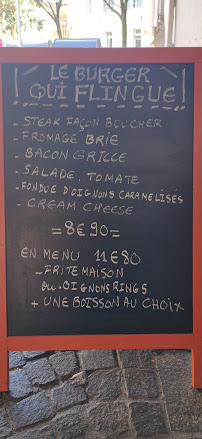 ! LE BURGER
QUI FLINGUE !
- STEAK FAÇON BOUCHER
- FROMAGE BRIE
- BACON GRILLE
- SALADE. TOMATE
- FONDUE D'OIGNONS CARAMELISÉS
- CREAM CHEESE
= 8€90 =
EN MENU 11€80
- FRITE MAISON
ou. OIGNONS RINGS
+ UNE BOISSON AU CHOIX